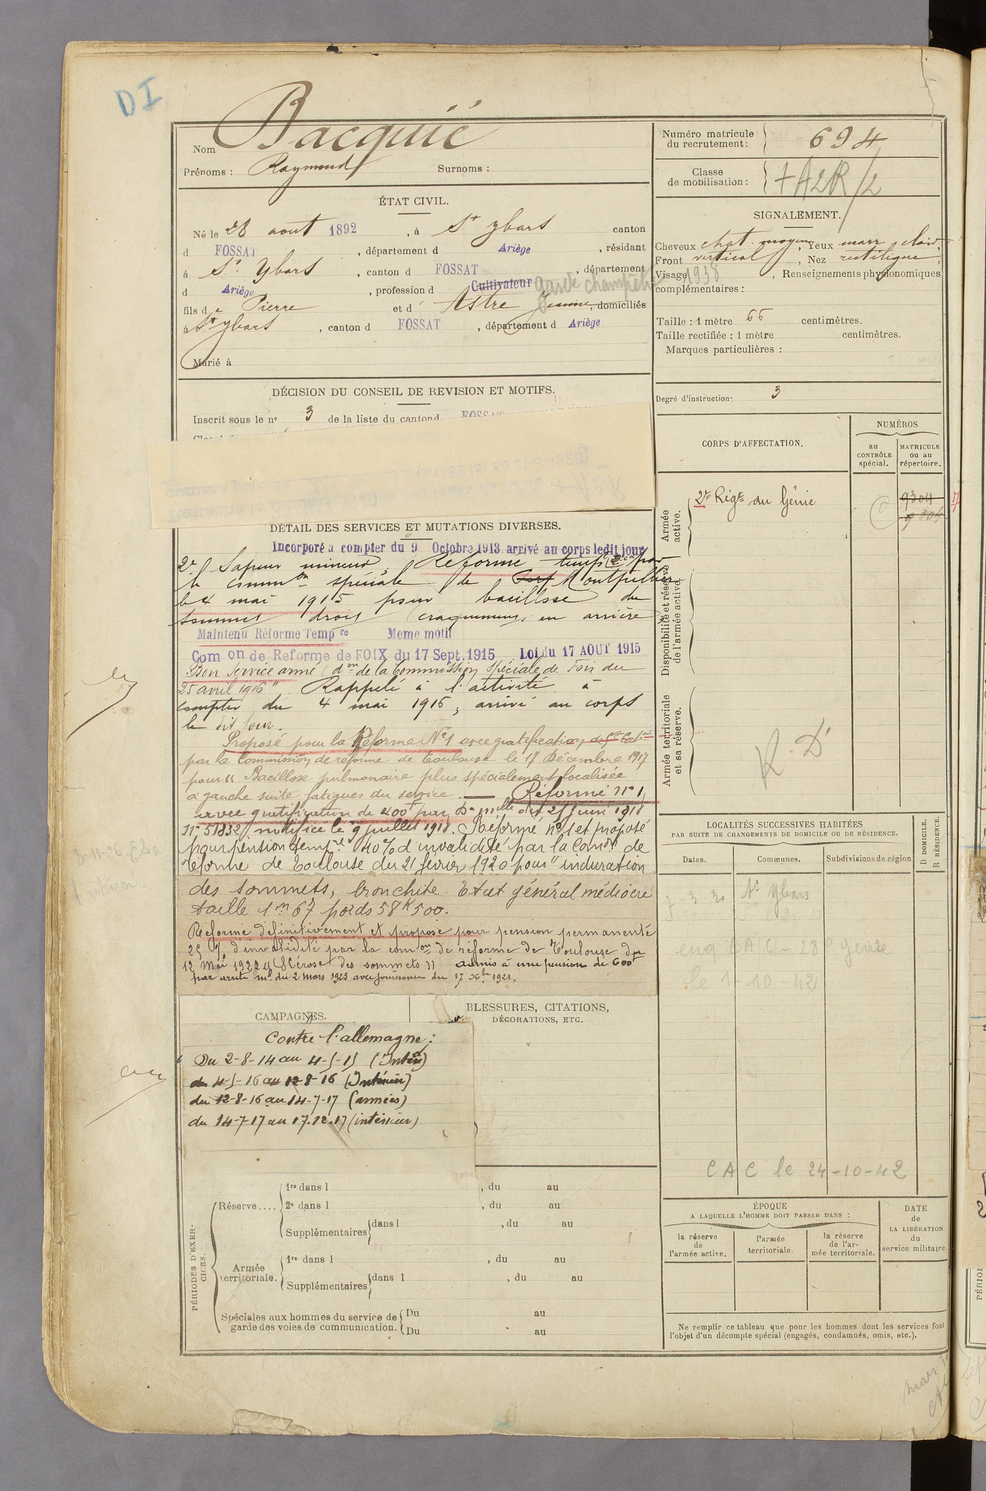 DI
Nom Bacquié
Prénoms : Raymond Surnoms :
Numéro matricule du recrutement : 694
Classe de mobilisation :
ÉTAT CIVIL.
Né le 28 aout 1892, à St Ybars canton
d FOSSAT, département d Ariège, résidant
à St Ybars, canton d FOSSAT, département
d Ariège, profession d Cultivateur Garde champêtre
fils de Pierre et d' Astre Jeanne, domiciliés
à St Ybars, canton d FOSSAT, département d Ariège
Marié à
SIGNALEMENT.
Cheveux chat. moyen, Yeux marr. clair
Front vertical, Nez rectiligne
Visage 1938, Renseignements physionomiques
complémentaires :
Taille : 1 mètre 66 centimètres.
Taille rectifiée : 1 mètre centimètres.
Marques particulières :
Degré d'instruction : 3
DÉCISION DU CONSEIL DE REVISION ET MOTIFS.
Inscrit sous le no 3 de la liste du canton d FOSSAT
CORPS D'AFFECTATION.
NUMÉROS
au CONTRÔLE spécial.
MATRICULE ou au répertoire.
Armée active.
2e Régt du Génie
9304
9304
Disponibilité et réserve de l'armée active.
Armée territoriale et sa réserve.
R. D'
DÉTAIL DES SERVICES ET MUTATIONS DIVERSES.
Incorporé à compter du 9 Octobre 1913 arrivé au corps ledit jour
2e Sapeur mineur. Réformé temp. par
la Common spéciale de Montpellier
le 4 mai 1915 pour bacillose du
sommet droit craquements en arrière
Maintenu Réforme Tempre Meme motif
Comon de Reforme de FOIX du 17 Sept. 1915 Loi du 17 AOUT 1915
Bon service armé (don de la Commission Spéciale de Foix du
25 avril 1916". Rappelé à l'activité à
compter du 4 mai 1916, arrivé au corps
le dit jour.
Proposé pour la Réforme No 1 avec gratification
par la Commission de réforme de Toulouse le 17 Décembre 1917
pour "Bacillose pulmonaire plus spécialement localisée
à gauche suite fatigues du service. — Réformé no 1,
avec gratification de 400f par Don mlle du 21 juin 1918
no 51832, notifiée le 9 juillet 1918. Réformé no 1 et proposé
pour pension tempre 40% d'invalidité par la Comon de
réforme de Toulouse du 21 février 1920 pour "induration
des sommets, bronchite. Etat général médiocre
taille 1m 67 poids 58K500.
Réformé définitivement et proposé pour pension permanente
d'invalidité par la comon de réforme de Toulouse du
12 Mai 1922 "Sclérose des sommets" Admis à une pension de 600f
par arrêté mel du 2 mars 1923 avec jouissance du 17 Xbre 1921.
LOCALITÉS SUCCESSIVES HABITÉES
PAR SUITE DE CHANGEMENTS DE DOMICILE OU DE RÉSIDENCE.
Dates. Communes. Subdivisions de région
D DOMICILE. R RÉSIDENCE.
7-3-30 St Ybars
eng CAC - 28e Génie
le 1-10-42
CAC le 24-10-42
CAMPAGNES.
Contre l'allemagne :
Du 2-8-14 au 4-5-15 (Intérr)
du 4-5-16 au 12-8-16 (Intérieur)
du 12-8-16 au 14-7-17 (armées)
du 14-7-17 au 17.12.17 (intérieur)
BLESSURES, CITATIONS,
DÉCORATIONS, ETC.
PÉRIODES D'EXERCICES.
Réserve.... 1re dans l , du au
2e dans l , du au
Supplémentaires dans l , du au
Armée territoriale. 1re dans l , du au
Supplémentaires dans l , du au
Spéciales aux hommes du service de garde des voies de communication. Du au
Du au
ÉPOQUE
A LAQUELLE L'HOMME DOIT PASSER DANS :
la réserve de l'armée active.
l'armée territoriale.
la réserve de l'armée territoriale.
DATE de LA LIBÉRATION du service militaire.
Ne remplir ce tableau que pour les hommes dont les services font
l'objet d'un décompte spécial (engagés, condamnés, omis, etc.).